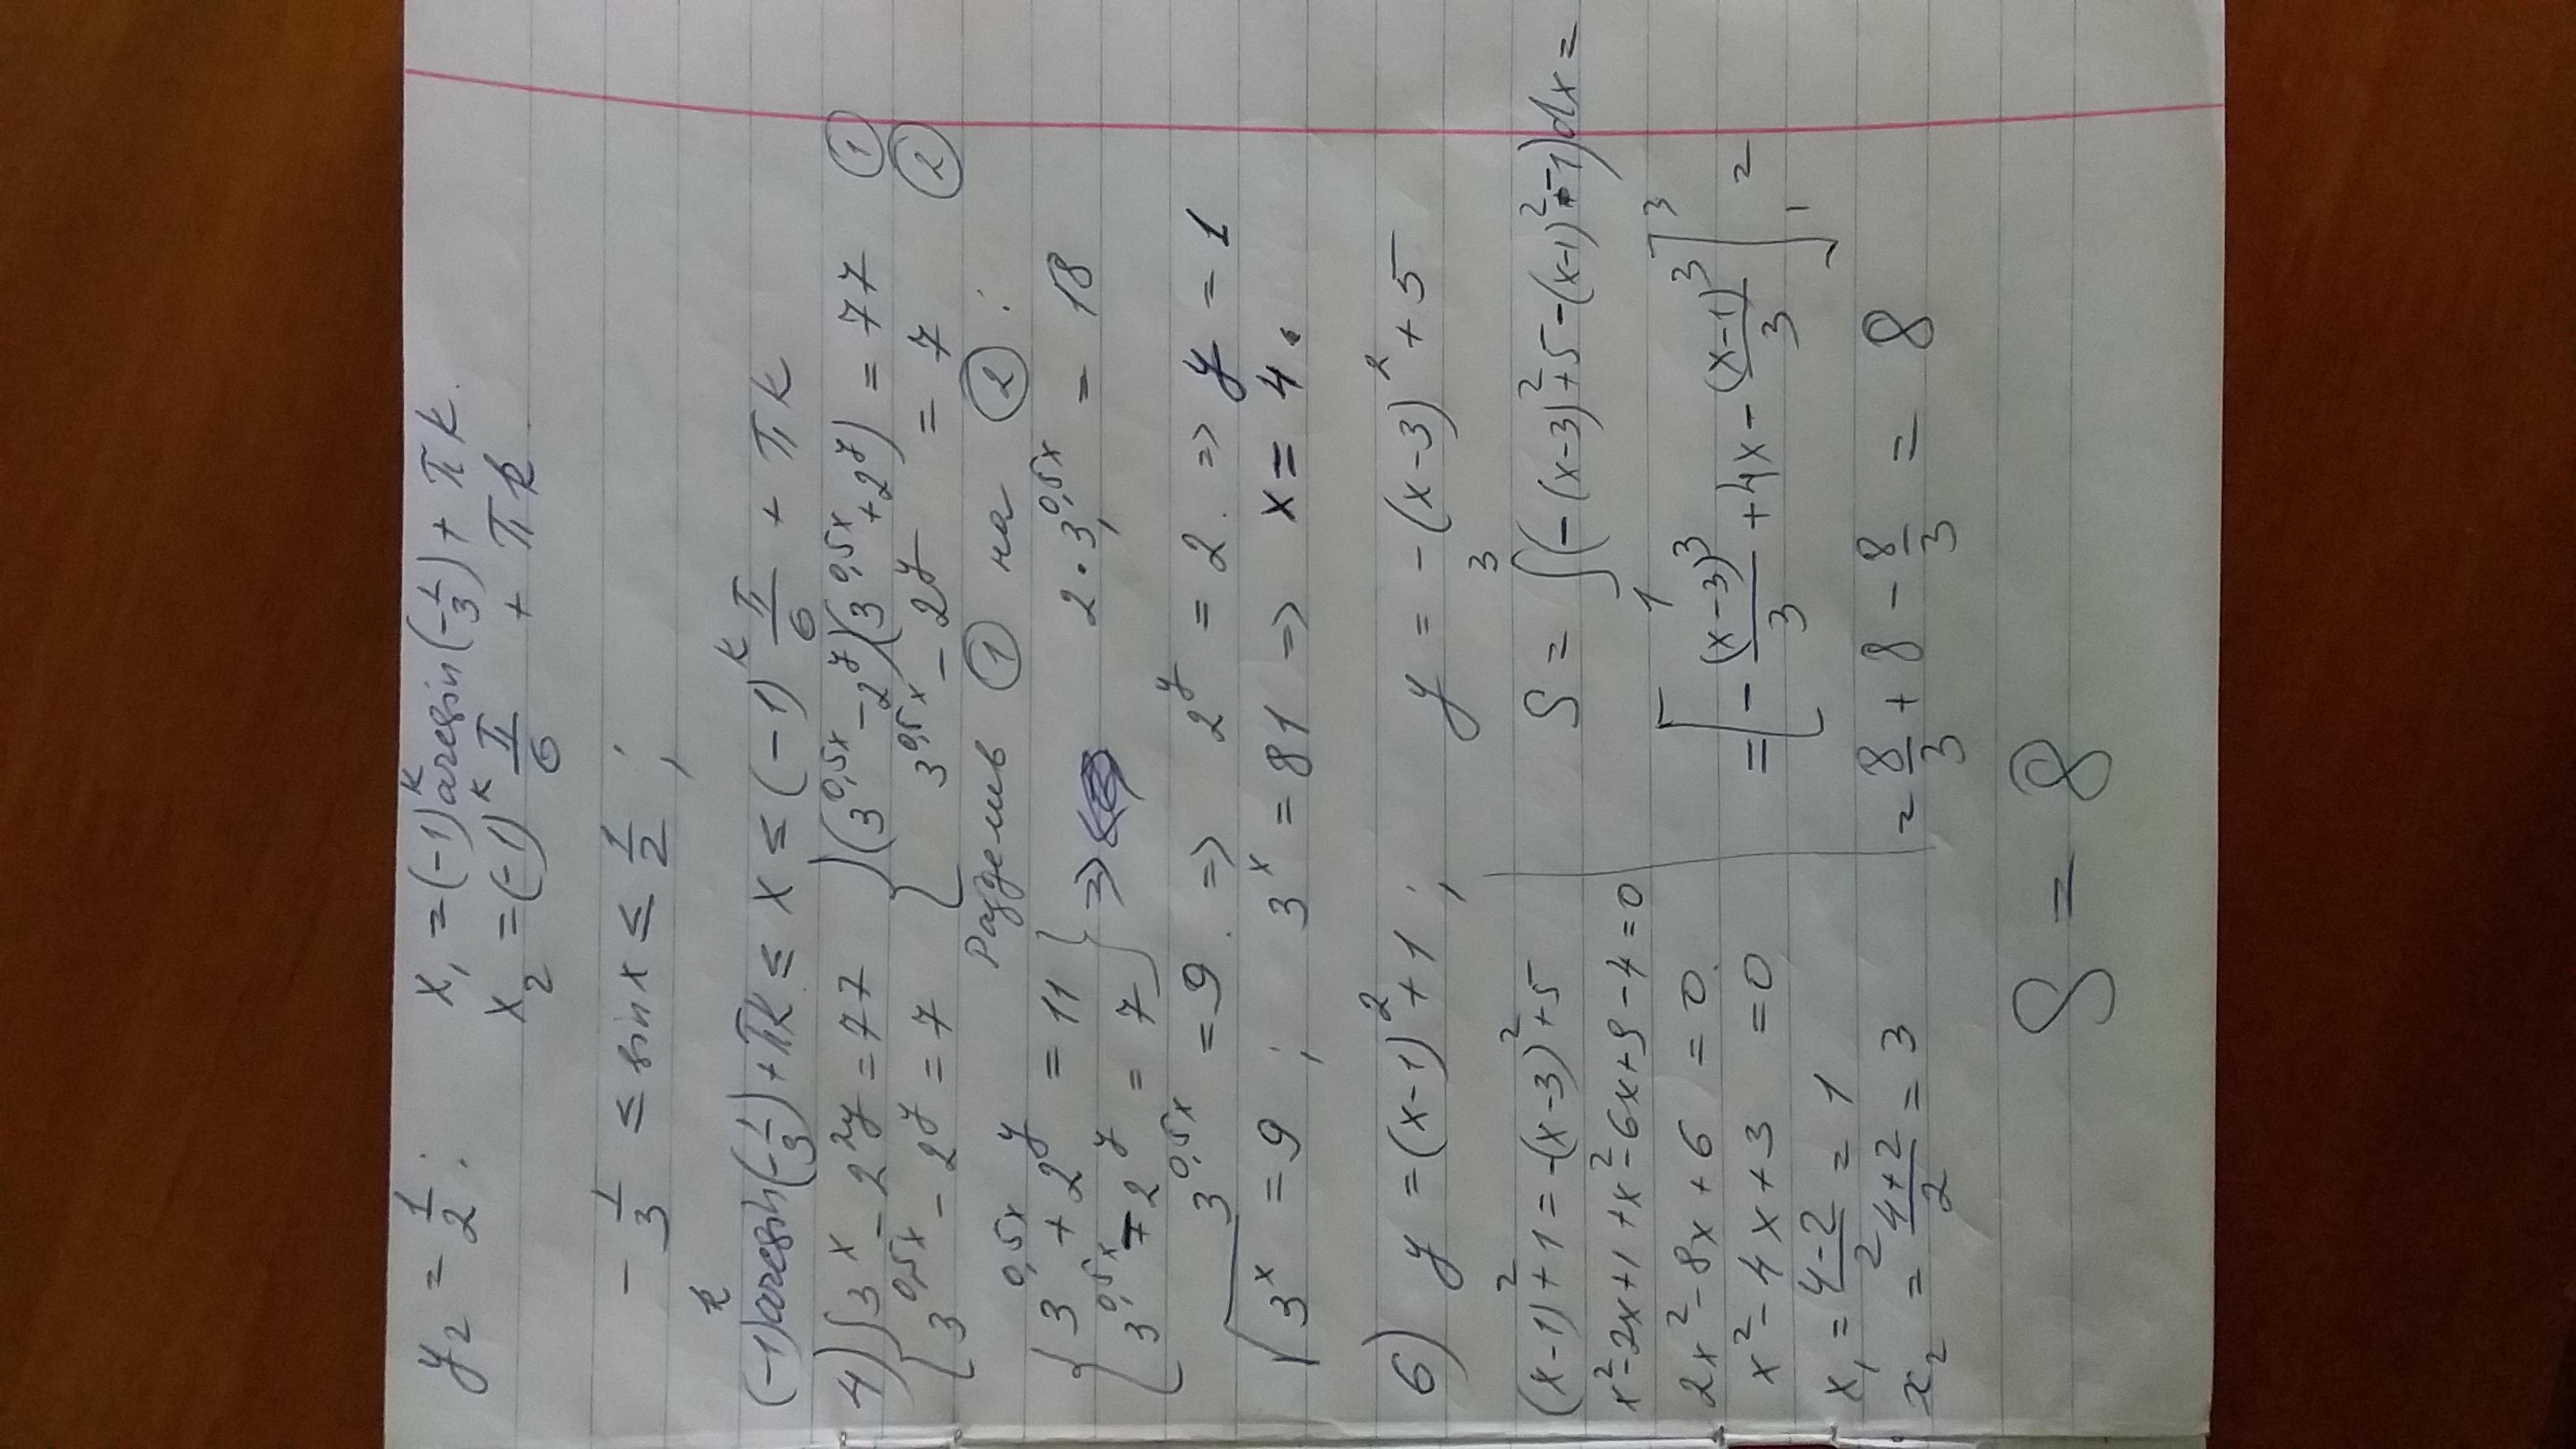 y₂ = 1/2. x₁ = (-1)ᵏ arcsin(-1/3) + πk.
x₂ = (-1)ᵏ π/6 + πk
-1/3 ≤ sin x ≤ 1/2 ;
(-1)ᵏ arcsin(-1/3) + πk ≤ x ≤ (-1)ᵏ π/6 + πk
4) { 3ˣ - 2²ʸ = 77 { (3^0,5x - 2ʸ)(3^0,5x + 2ʸ) = 77 ①
3^0,5x - 2ʸ = 7 3^0,5x - 2ʸ = 7 ②
Разделив ① на ② :
{ 3^0,5x + 2ʸ = 11 } => 2·3^0,5x = 18
3^0,5x - 2ʸ = 7
3^0,5x = 9. => 2ʸ = 2. => y = 1
√3ˣ = 9 ; 3ˣ = 81 => x = 4.
6) y = (x-1)² + 1 ; y = -(x-3)² + 5
(x-1)² + 1 = -(x-3)² + 5
x² - 2x + 1 + x² - 6x + 9 - 4 = 0
2x² - 8x + 6 = 0.
x² - 4x + 3 = 0
x₁ = (4-2)/2 = 1
x₂ = (4+2)/2 = 3
S = ∫₁³ (-(x-3)² + 5 - (x-1)² - 1)dx =
= [ -(x-3)³/3 + 4x - (x-1)³/3 ]₁³ =
= 8/3 + 8 - 8/3 = 8
S = 8